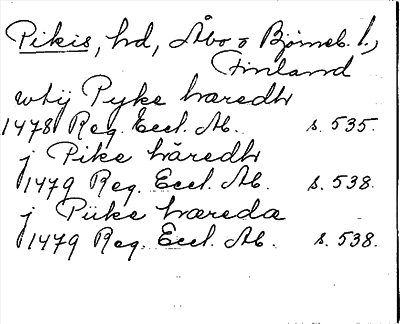 Pikis, hd, Åbo o Bjørneb. l.,
Finland
wtij Pyke hæredh
1478 Reg. Eccl. Ab. s. 535.
j Pike häredh
1479 Reg. Eccl. Ab. s. 538.
j Püke hæreda
1479 Reg. Eccl. Ab. s. 538.